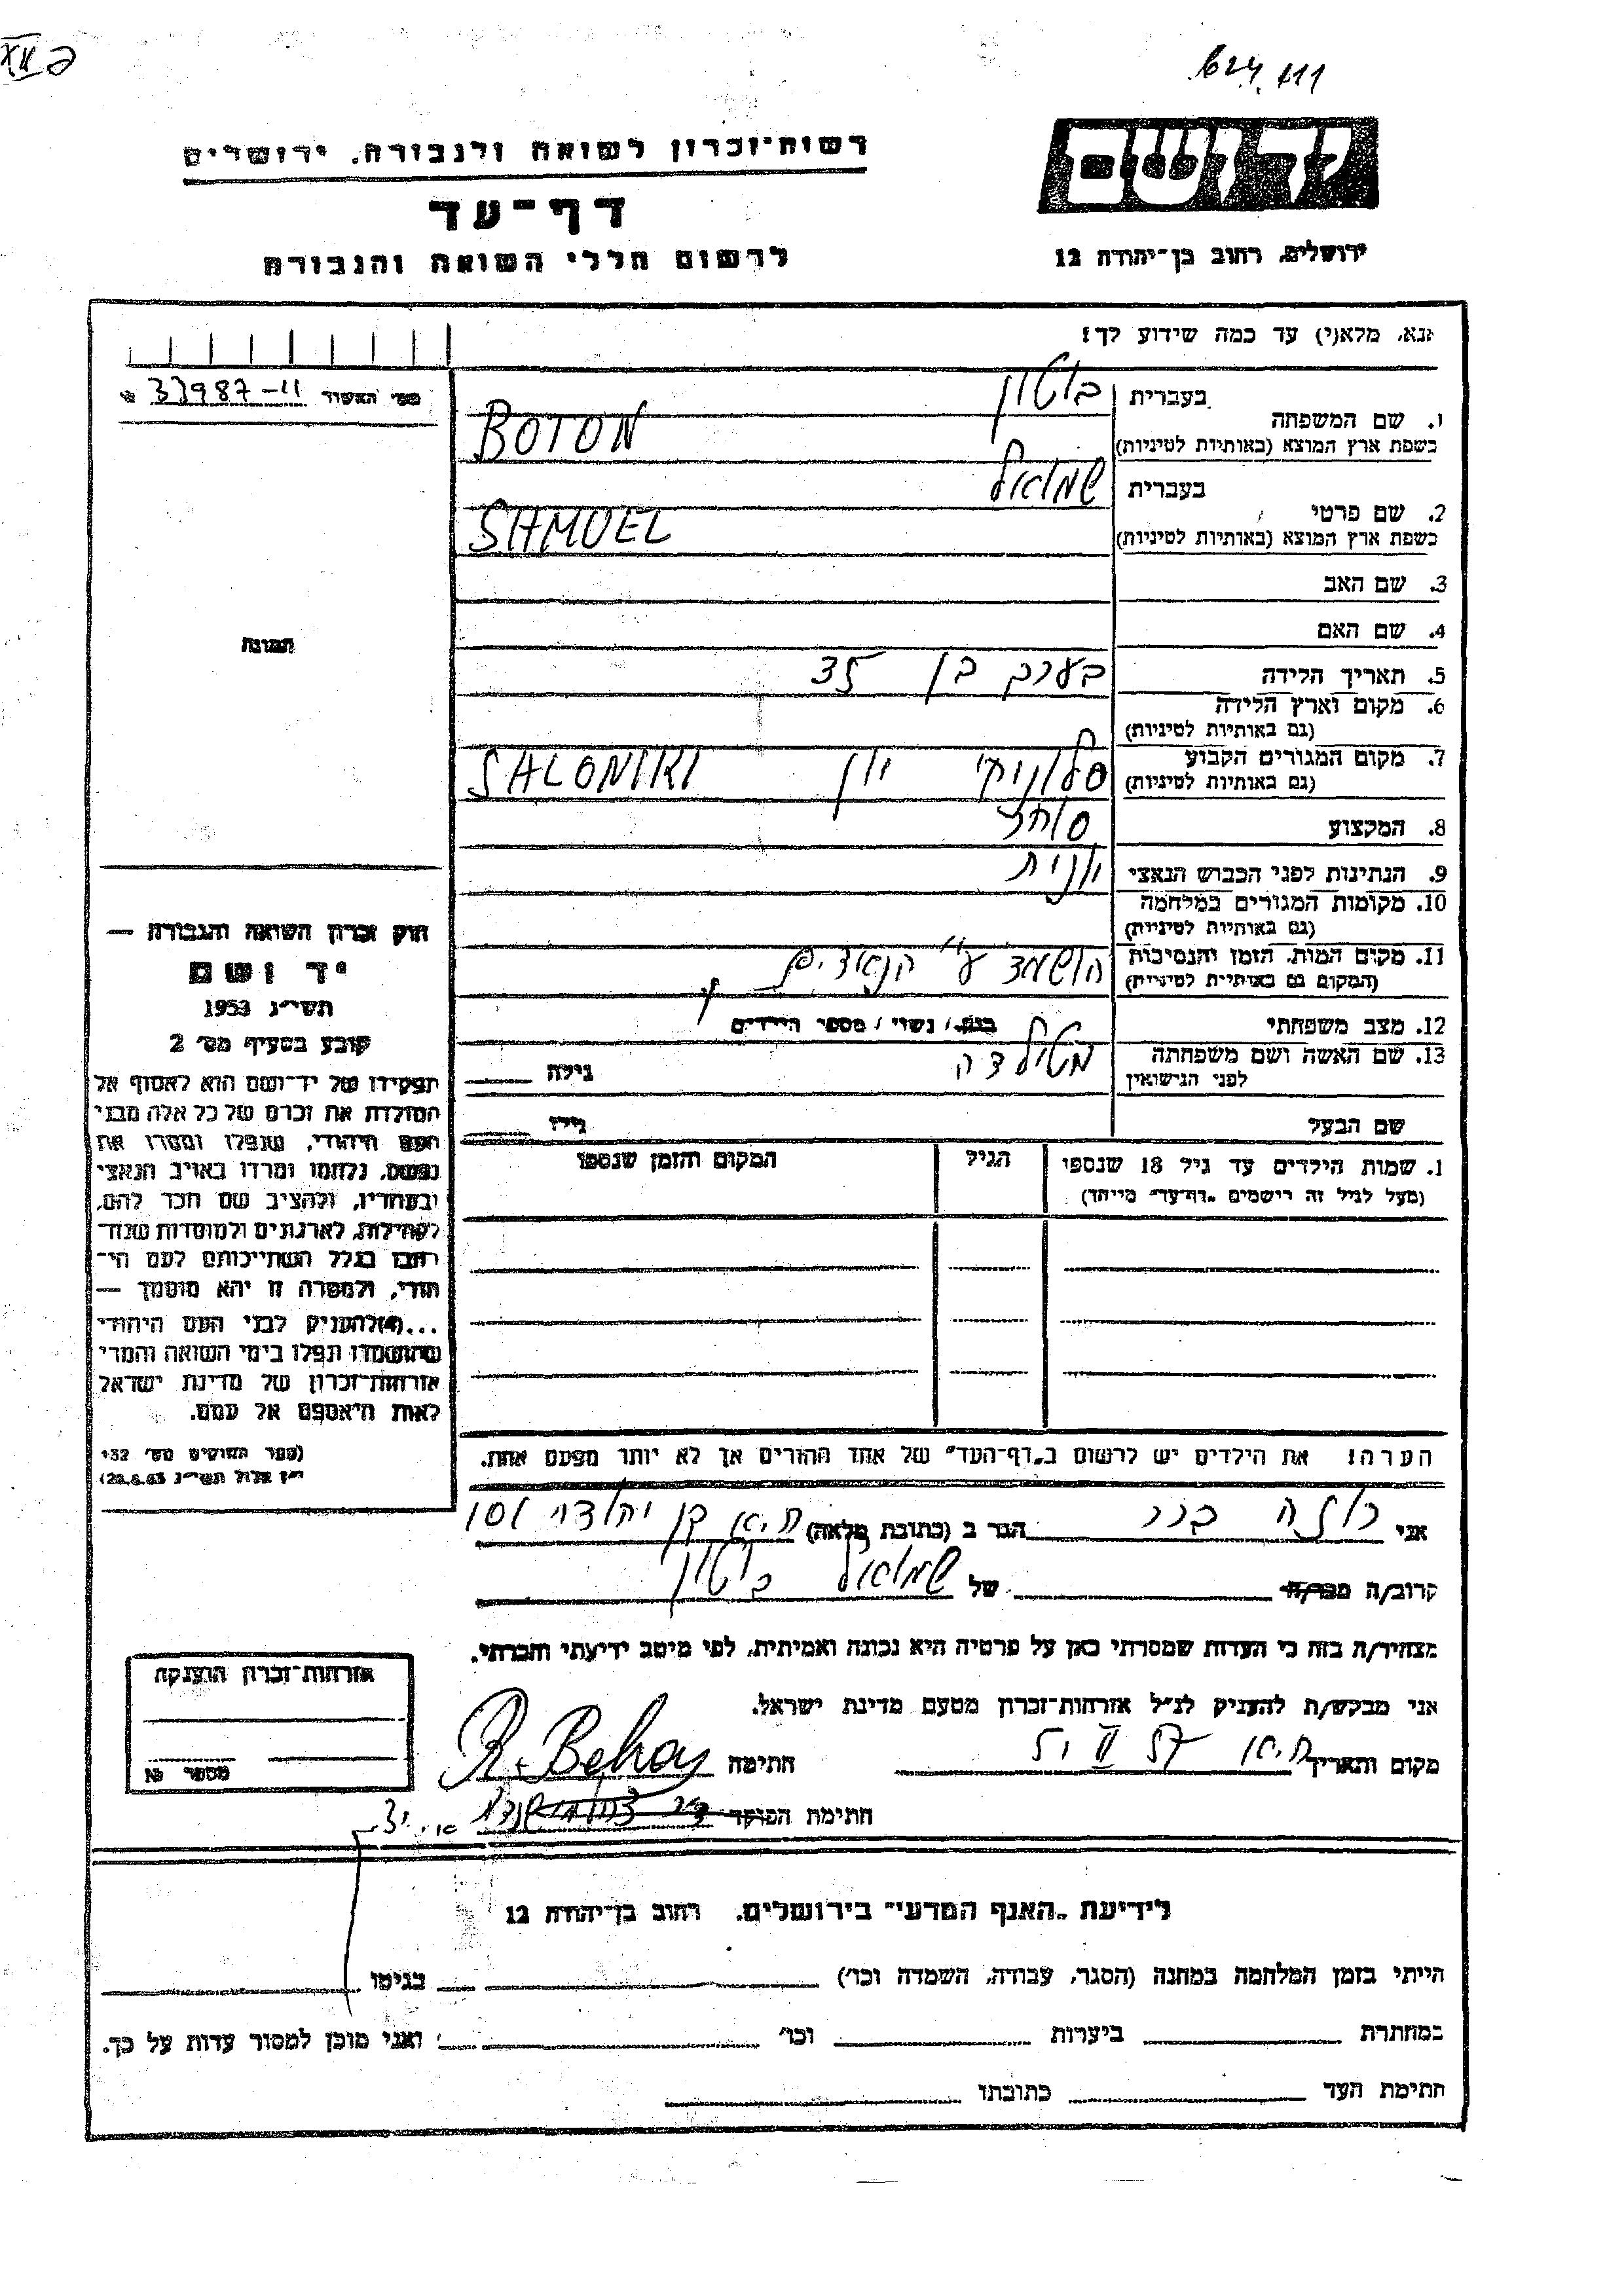 624 111
רשות־זכרון לשואה ולגבורה. ירושלים
יד ושם
דף־עד
לרשום חללי השואה והגבורה
ירושלים, רחוב בן־יהודה 12
אנא, מלא(י) עד כמה שידוע לך!
מס׳ האשור 33987-11
תמונה
בעברית בוטון
1. שם המשפחה
בשפת ארץ המוצא (באותיות לטיניות) BOTON
בעברית שמואל
2. שם פרטי
בשפת ארץ המוצא (באותיות לטיניות) SHMUEL
3. שם האב
4. שם האם
5. תאריך הלידה בערך בן 35
6. מקום וארץ הלידה
(גם באותיות לטיניות)
7. מקום המגורים הקבוע סלוניקי יון SALONIKI
(גם באותיות לטיניות)
8. המקצוע סוחר
9. הנתינות לפני הכבוש הנאצי יונית
10. מקומות המגורים במלחמה
(גם באותיות לטיניות)
11. מקום המות, הזמן והנסיבות הושמד ע״י הנאצים
(המקום גם באותיות לטיניות)
12. מצב משפחתי רווק / נשוי / מספר הילדים
13. שם האשה ושם משפחתה מטילדה גילה
לפני הנישואין
שם הבעל גילו
1. שמות הילדים עד גיל 18 שנספו הגיל המקום והזמן שנספו
(מעל לגיל זה רישמים „דף־עד״ מיוחד)
הערה! את הילדים יש לרשום ב„דף־העד״ של אחד ההורים אך לא יותר מפעם אחת.
חוק זכרון השואה והגבורה —
יד ושם
תשי״ג 1953
קובע בסעיף מס׳ 2
תפקידו של יד־ושם הוא לאסוף אל
המולדת את זכרם של כל אלה מבני
העם היהודי, שנפלו ומסרו את
נפשם, נלחמו ומרדו באויב הנאצי
ובעוזריו, ולהציב שם וזכר להם,
לקהילות, לארגונים ולמוסדות שנח־
רבו בגלל השתייכותם לעם הי־
הודי, ולמטרה זו יהא מוסמך —
...(4) להעניק לבני העם היהודי
שהושמדו ונפלו בימי השואה והמרי
אזרחות־זכרון של מדינת ישראל
לאות היאספם אל עמם.
(ספר החוקים מס׳ 132
י״ז אלול תשי״ג 28.8.53)
אני הגר ב (כתובת מלאה) ת.א. בן יהודה 101
קרוב/ה מכר/ה של שמואל בוטון
מצהיר/ה בזה כי העדות שמסרתי כאן על פרטיה היא נכונה ואמיתית, לפי מיטב ידיעתי והכרתי.
אני מבקש/ת להעניק לנ״ל אזרחות־זכרון מטעם מדינת ישראל.
מקום ותאריך ת.א. חתימה R. Behar
חתימת הפוקד
אזרחות־זכרון הוענקה
מספר №
לידיעת „האגף המדעי״ בירושלים. רחוב בן־יהודה 12
הייתי בזמן המלחמה במחנה (הסגר, עבודה, השמדה וכו׳) בגיטו
במחתרת ביערות וכו׳ ואני מוכן למסור עדות על כך.
חתימת העד כתובתו